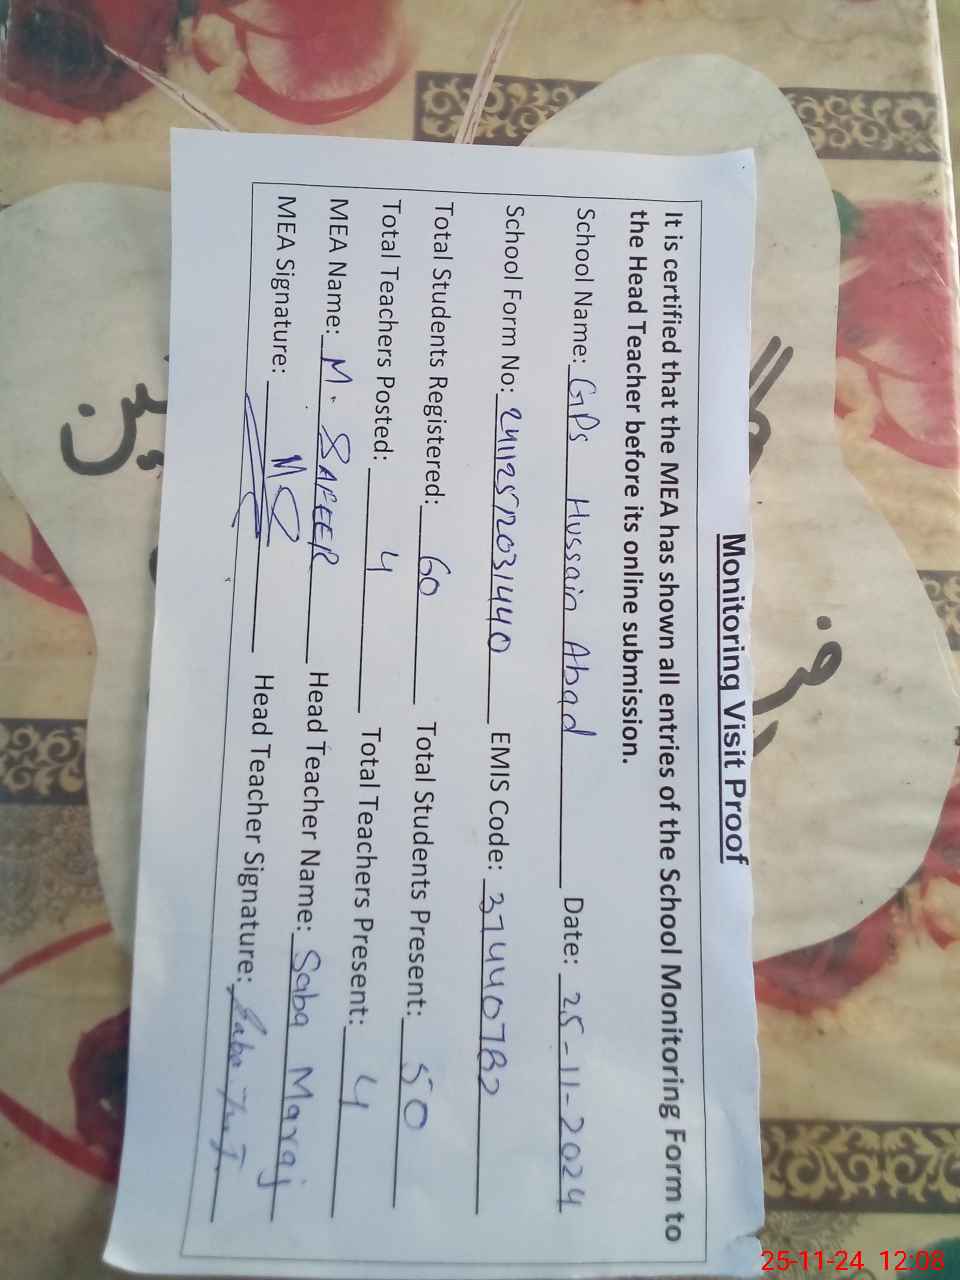 Monitoring Visit Proof
It is certified that the MEA has shown all entries of the School Monitoring Form to
the Head Teacher before its online submission.
School Name: GPs Hussain Abad Date: 25-11-2024
School Form No: 241125P2031440 EMIS Code: 37440782
Total Students Registered: 60 Total Students Present: 50
Total Teachers Posted: 4 Total Teachers Present: 4
MEA Name: M. SAFEER Head Teacher Name: Saba Maraj
MEA Signature: Head Teacher Signature: Saba
25-11-24 12:08